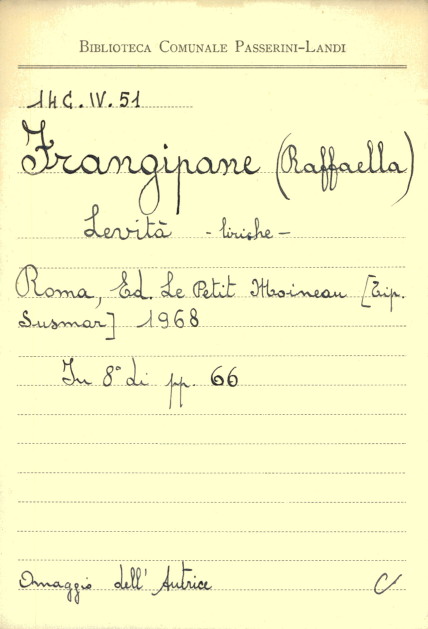 BIBLIOTECA COMUNALE PASSERINI-LANDI
14C.IV.51
Frangipane (Raffaella)
Levità - liriche -
Roma, Ed. Le Petit Moineau [Tip.
Susmar] 1968
In 8° di pp. 66
Omaggio dell' Autrice